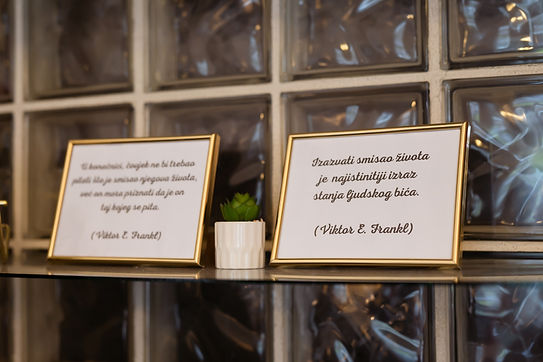 U konačnici, čovjek ne bi trebao
pitati što je smisao njegova života,
već on mora priznati da je on
taj kojeg se pita.
(Viktor E. Frankl)
Izazvati smisao života
je najistinitiji izraz
stanja ljudskog bića.
(Viktor E. Frankl)